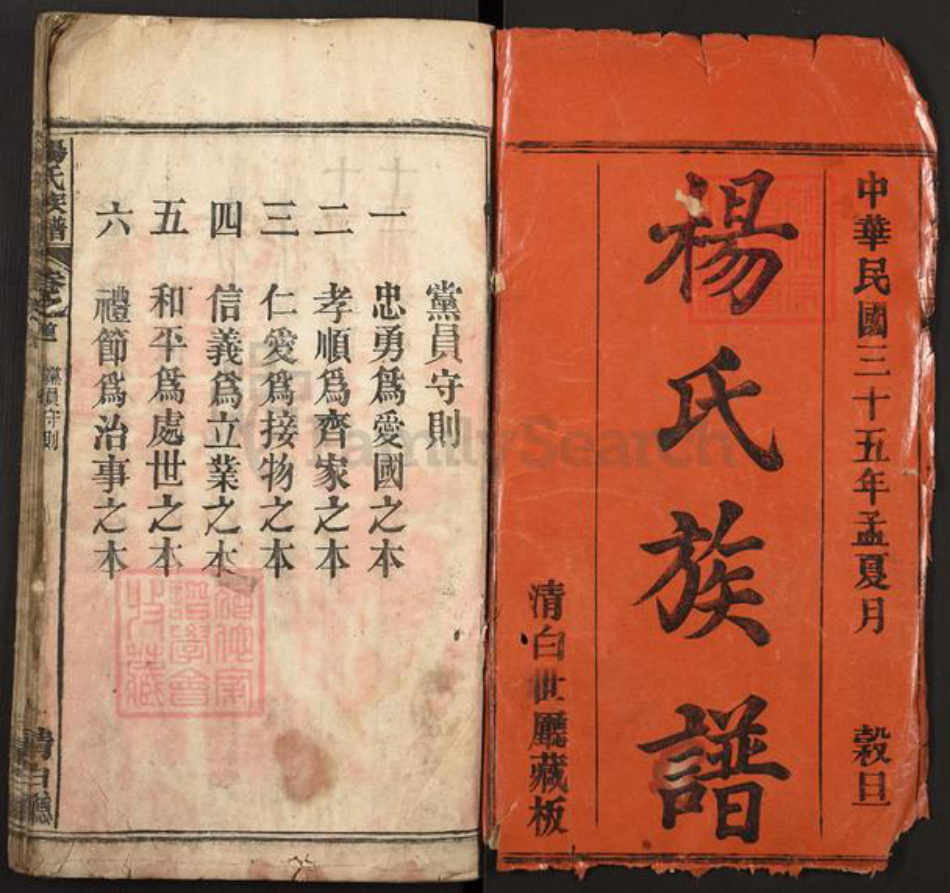 中華民國三十五年孟夏月 穀旦
楊氏族譜
清白世廳藏板
黨員守則
一 忠勇爲愛國之本
二 孝順爲齊家之本
三 仁愛爲接物之本
四 信義爲立業之本
五 和平爲處世之本
六 禮節爲治事之本
楊氏族譜
黨員守則
清白廳
FamilySearch